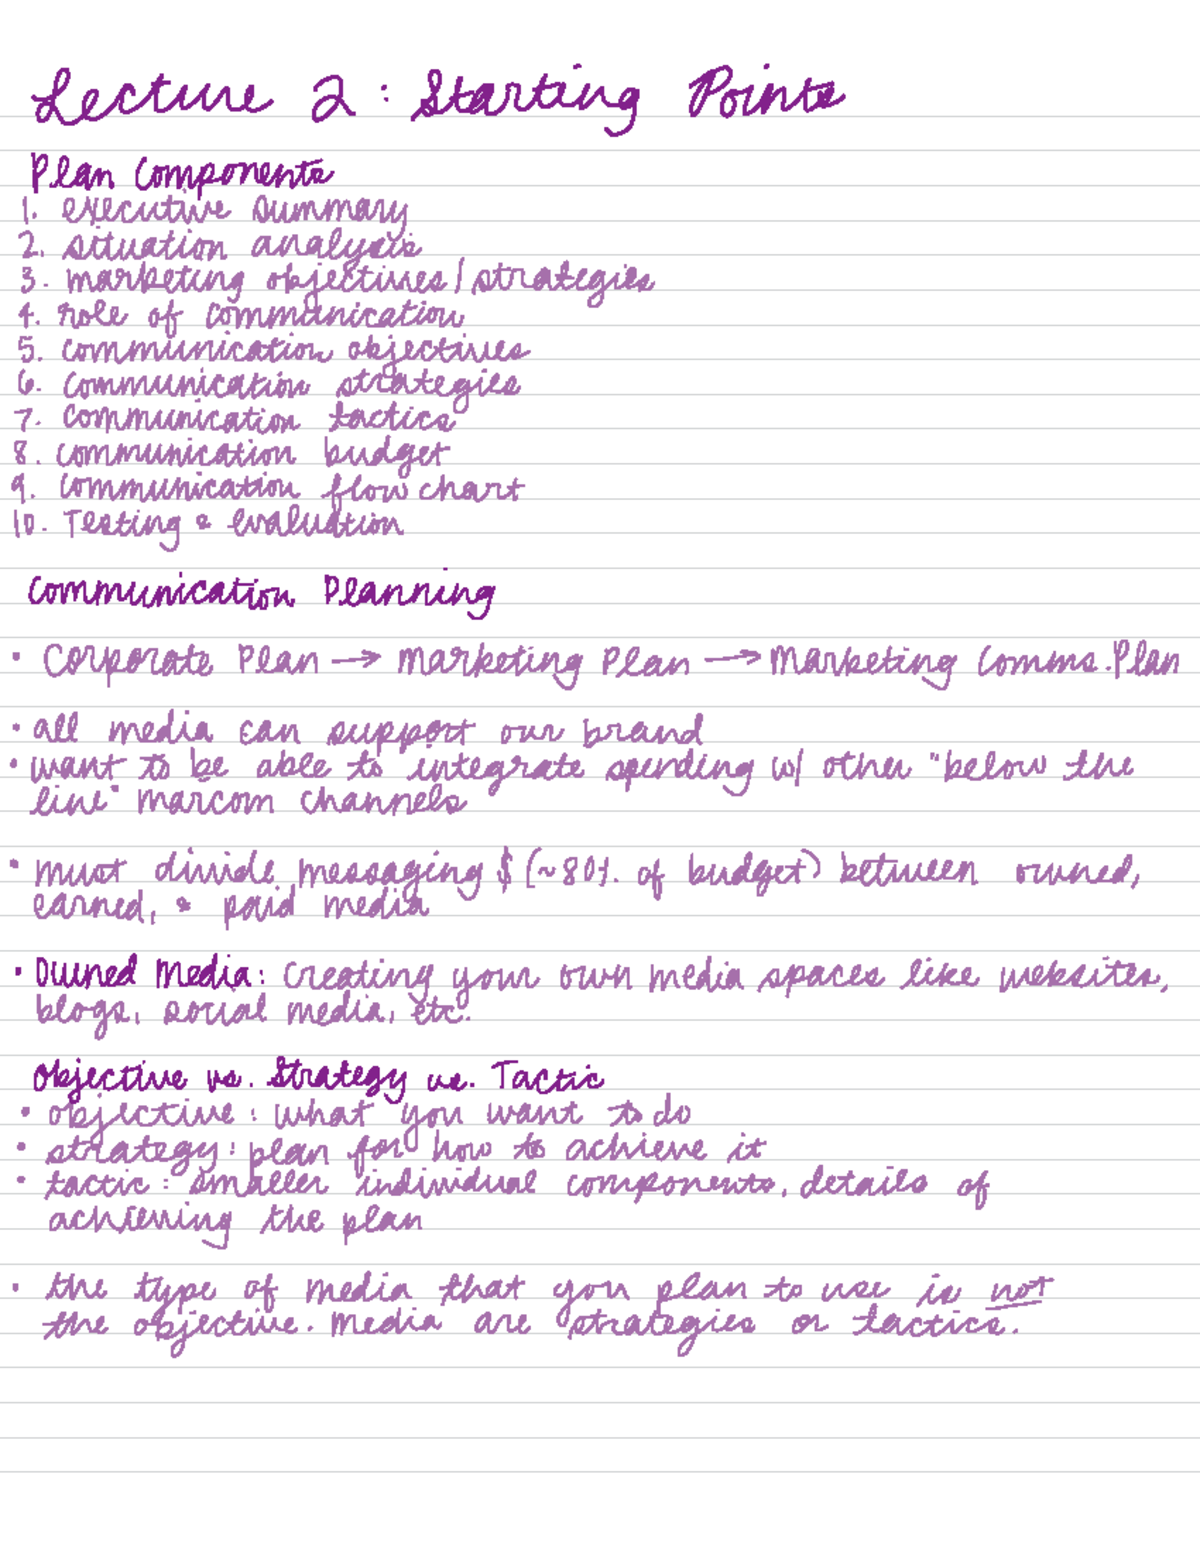 Lecture 2: Starting Points
Plan Components
1. executive summary
2. situation analysis
3. marketing objectives/strategies
4. role of communication
5. communication objectives
6. communication strategies
7. communication tactics
8. communication budget
9. communication flow chart
10. Testing & evaluation
Communication Planning
• Corporate Plan → Marketing Plan → Marketing Comms. Plan
• all media can support our brand
• want to be able to integrate spending w/ other "below the
line" marcom channels
• must divide messaging $ (~80% of budget) between owned,
earned, & paid media
• Owned Media: creating your own media spaces like websites,
blogs, social media, etc.
Objective vs. Strategy vs. Tactic
• objective: what you want to do
• strategy: plan for how to achieve it
• tactic: smaller individual components, details of
achieving the plan
• the type of media that you plan to use is not
the objective. Media are strategies or tactics.